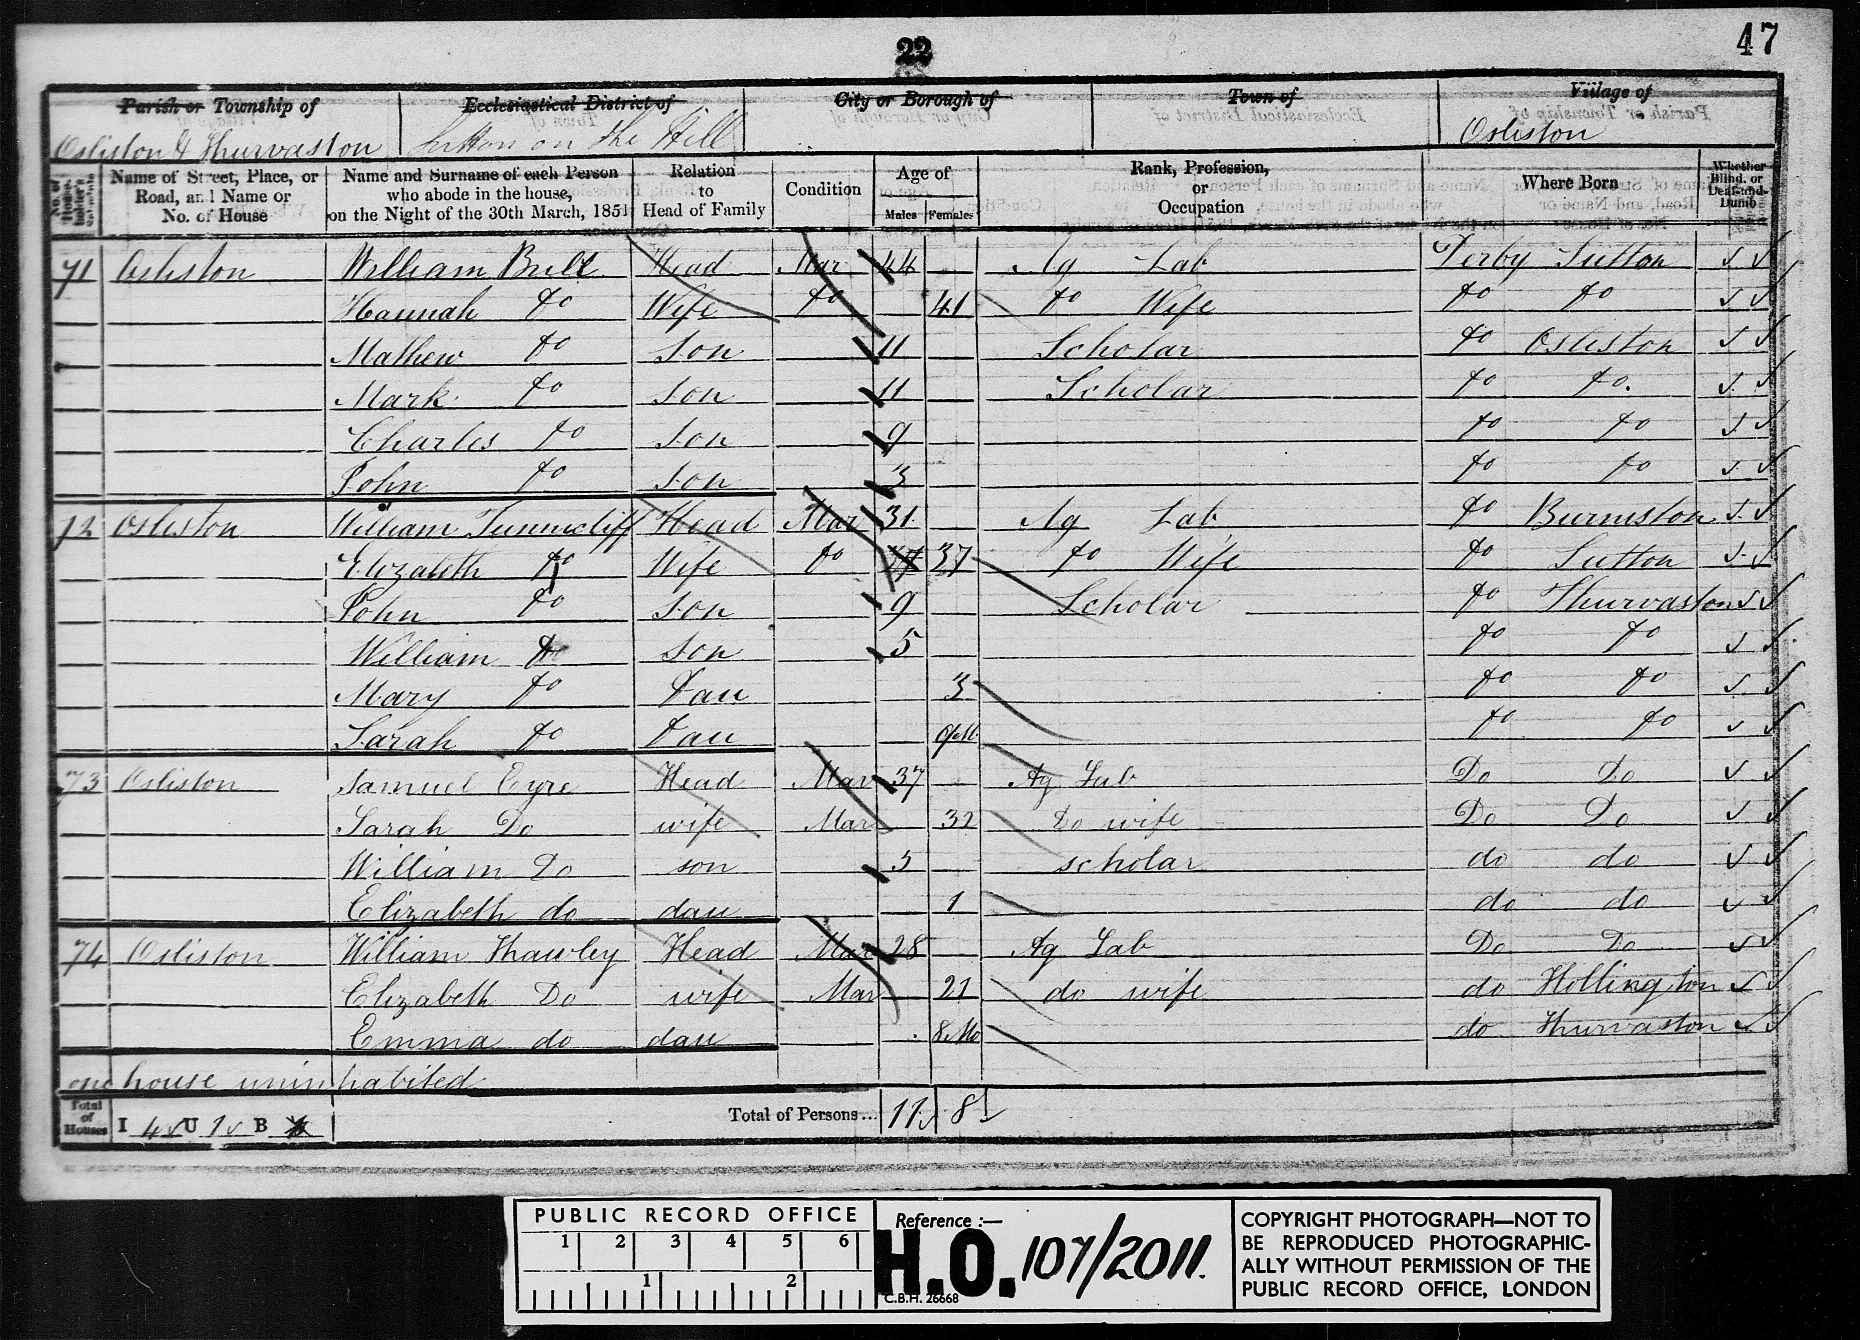 22
47
Parish or Township of Ecclesiastical District of City or Borough of Town of Village of
Osliston & Thurvaston Sutton on the Hill Osliston
No. of House-holder's Schedule Name of Street, Place, or Road, and Name or No. of House Name and Surname of each Person who abode in the house, on the Night of the 30th March, 1851 Relation to Head of Family Condition Age of Males Females Rank, Profession, or Occupation Where Born Whether Blind, or Deaf-and-Dumb
71 Osliston William Bull Head Mar 44 Ag Lab Derby Sutton
Hannah do Wife do 41 do Wife do do
Mathew do Son 11 Scholar do Osliston
Mark do Son 11 Scholar do do.
Charles do Son 9 do do
John do Son 3 do do
72 Osliston William Tunnicliff Head Mar 31 Ag Lab do Burniston
Elizabeth do Wife do 37 37 do Wife do Sutton
John do Son 9 Scholar do Thurvaston
William do Son 5 do do
Mary do Dau 3 do do
Sarah do Dau 9M do do
73 Osliston Samuel Eyre Head Mar 37 Ag Lab Do Do
Sarah Do wife Mar 32 Do wife Do Do
William Do son 5 scholar do do
Elizabeth do dau 1 do do
74 Osliston William Thawley Head Mar 28 Ag Lab Do Do
Elizabeth Do wife Mar 21 do wife do Hollington
Emma do dau 8 Mo do Thurvaston
one house uninhabited
Total of Houses I 4 U 1 B Total of Persons... 11 8
PUBLIC RECORD OFFICE
1 2 3 4 5 6
1 2
Reference :—
H.O. 107/2011.
C.B.H. 26668
COPYRIGHT PHOTOGRAPH—NOT TO
BE REPRODUCED PHOTOGRAPHIC-
ALLY WITHOUT PERMISSION OF THE
PUBLIC RECORD OFFICE, LONDON